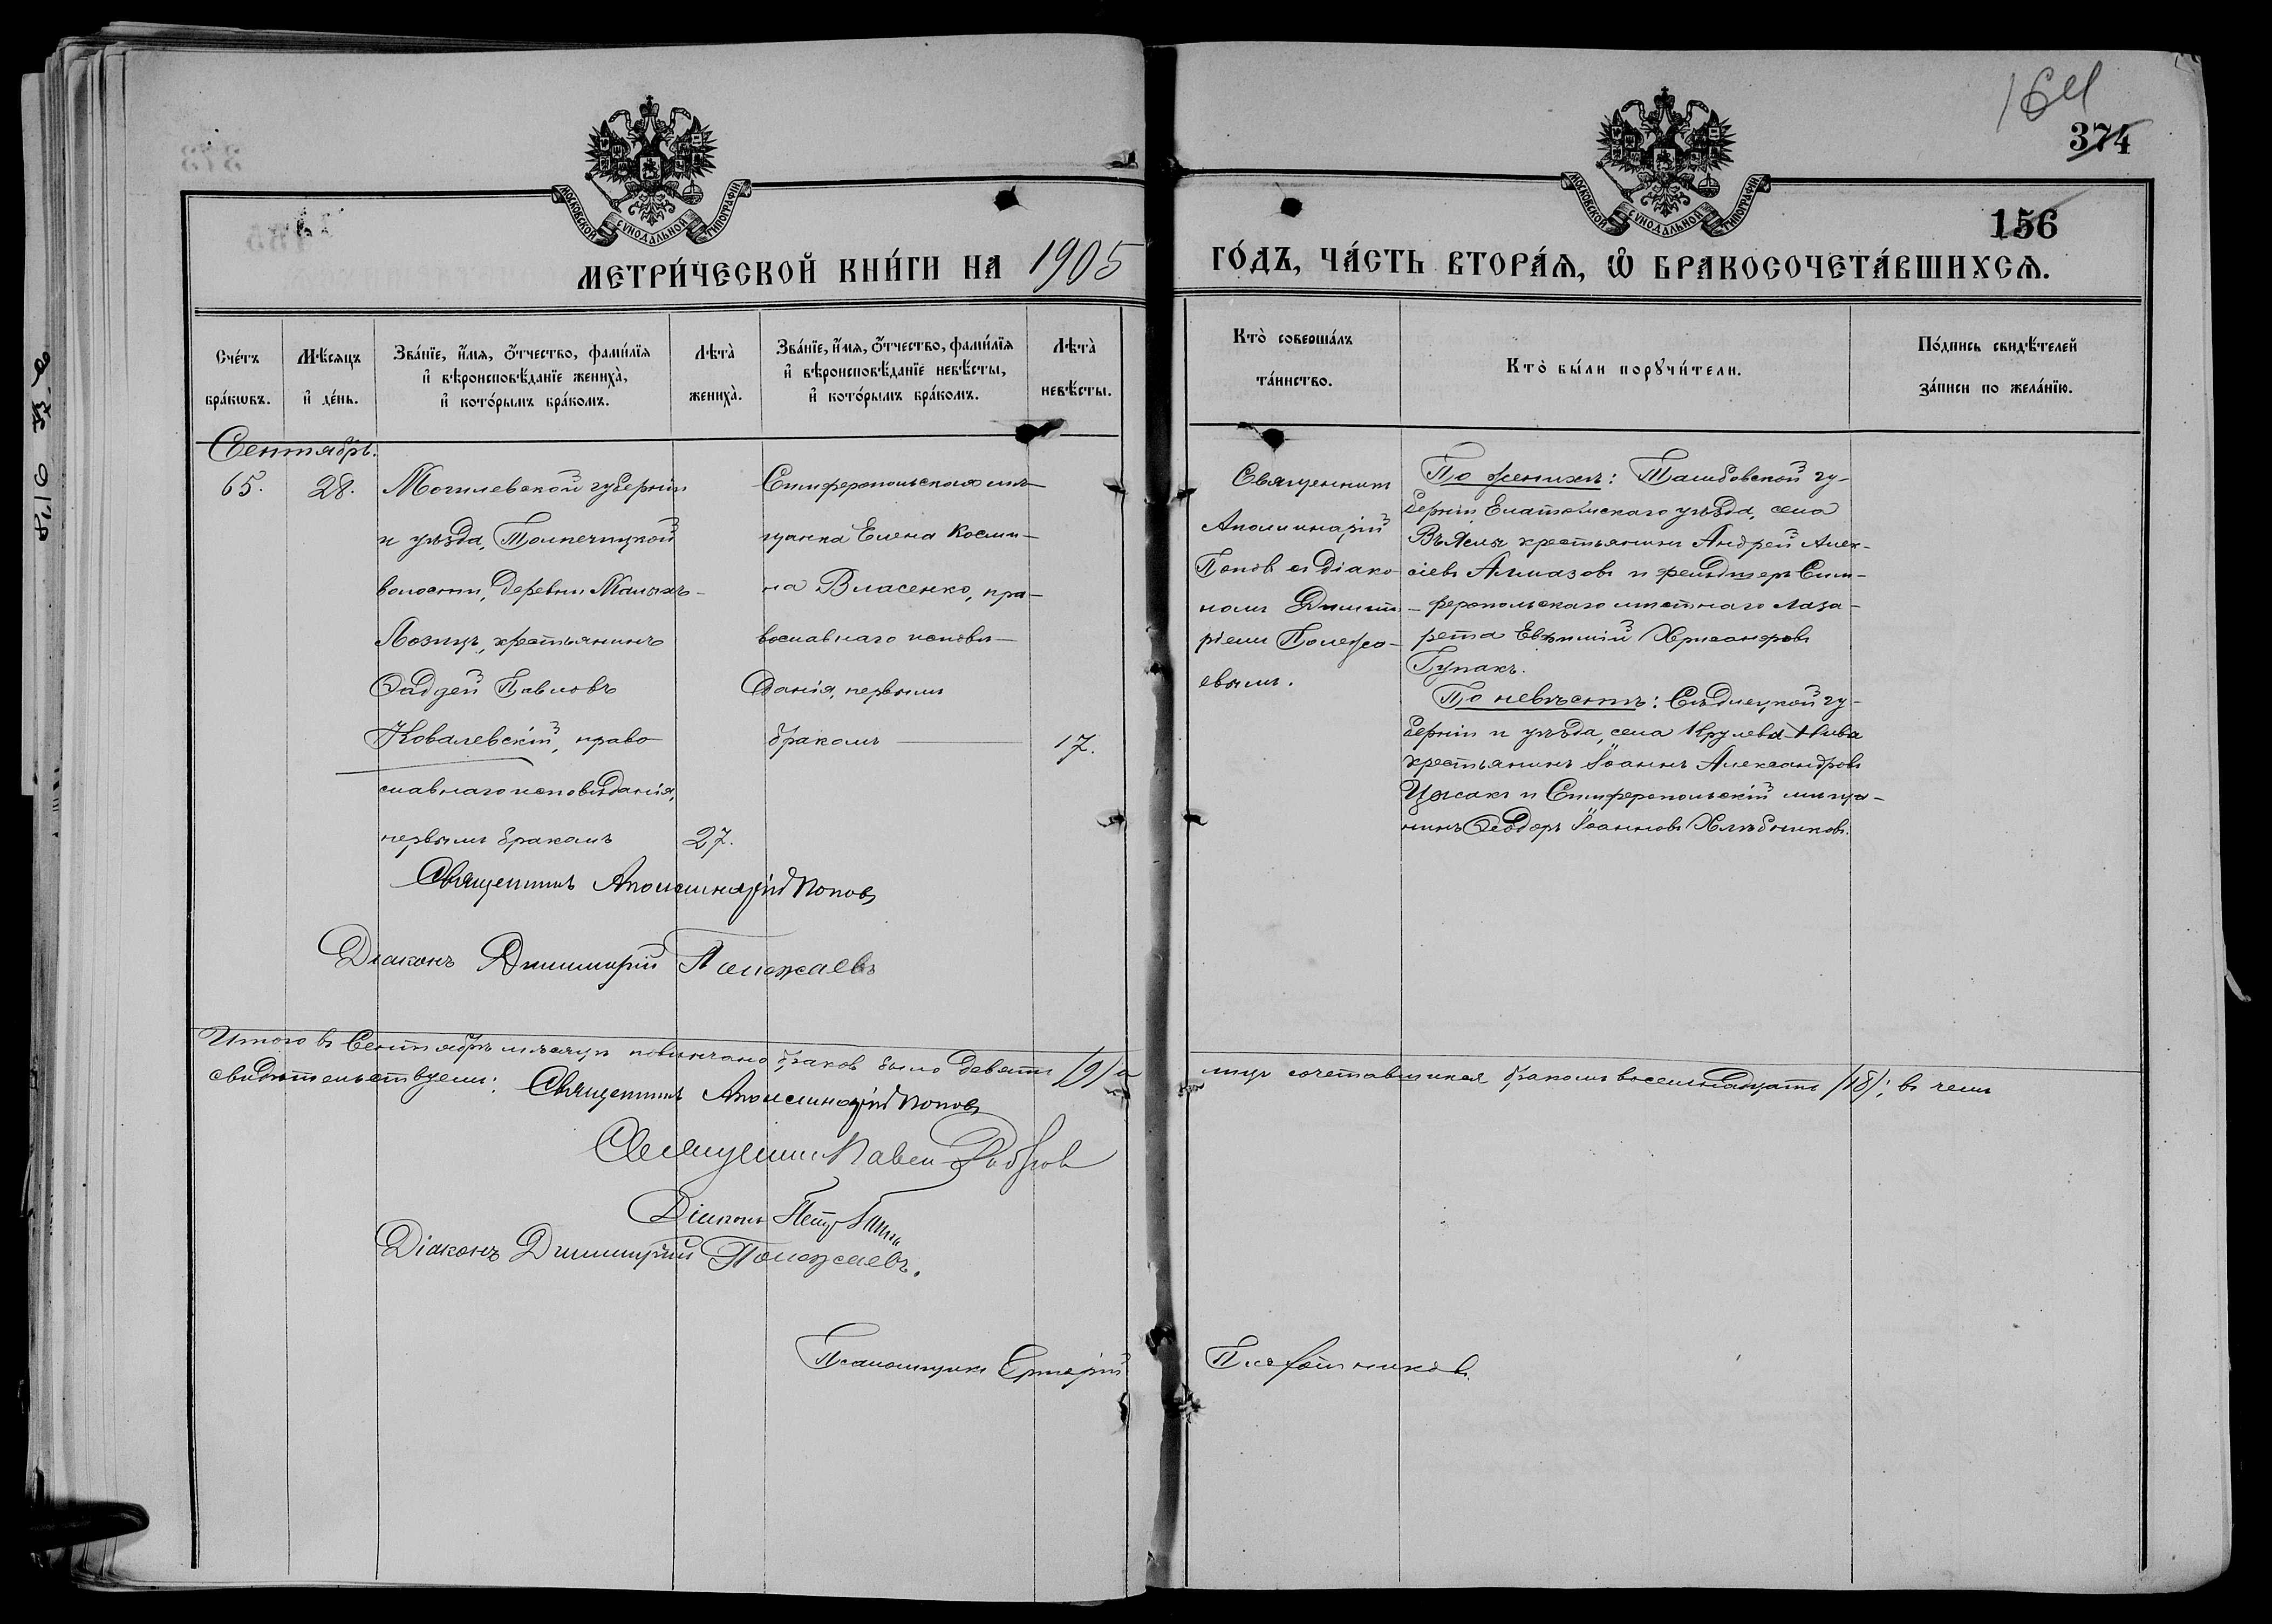 164
374
156
МОСКОВСКОЙ СѴНОДАЛЬНОЙ ТИПОГРАФІИ
МОСКОВСКОЙ СѴНОДАЛЬНОЙ ТИПОГРАФІИ
МЕТРИ́ЧЕСКОЙ КНИ́ГИ НА 1905 ГО́ДЪ, ЧА́СТЬ ВТОРА́Ѧ, Ѽ БРАКОСОЧЕТА́ВШИХСѦ.
Сче́тъ бра́кωвъ.
Мѣ́сяцъ и҆ де́нь.
Зва́нїе, и҆́мя, ѻ҆́тчество, фами́лїя и҆ вѣроисповѣ́данїе жениха̀, и҆ кото́рымъ бра́комъ.
Лѣта̀ жениха̀.
Зва́нїе, и҆́мя, ѻ҆́тчество, фами́лїя и҆ вѣроисповѣ́данїе невѣ́сты, и҆ кото́рымъ бра́комъ.
Лѣта̀ невѣ́сты.
Кто̀ соверша́лъ та́инство.
Кто̀ бы́ли порꙋчи́тели.
По́дпись свидѣ́телей за́писи по жела́нїю.
Сентябрь.
65.
28.
Могилевской губерніи
и уѣзда, Толпечицкой
волости, деревни Малыхъ-
Лозицъ, крестьянинъ
Ѳаддей Павловъ
Ковалевскій, право
славнаго исповѣданія,
первымъ бракомъ
27.
Симферопольская мѣ-
щанка Елена Косми-
на Власенко, пра-
вославнаго исповѣ-
данія, первымъ
бракомъ
17.
Священникъ
Аполлинарій
Попов съ діако-
номъ Димит-
ріемъ Полежа-
евымъ.
По женихѣ: Тамбовской гу-
берніи Елатомскаго уѣзда, села
Вялсы крестьянинъ Андрей Алек-
сіевъ Алмазовъ и фельдшеръ Сим-
феропольскаго мѣстнаго лаза-
рета Евѳимій Хрисанфовъ
Гупакъ.
По невѣстѣ: Сѣдлецкой гу-
берніи и уѣзда, села Крулева-Нива
крестьянинъ Іоаннъ Александровъ
Цысакъ и Симферопольскій мѣща-
нинъ Ѳеодоръ Іоанновъ Хлѣбниковъ.
Священникъ Аполлинарій Поповъ
Діаконъ Димитрій Полежаевъ
Итого въ Сентябрѣ мѣсяцѣ повѣнчано браковъ было девять /9/ а
лицъ сочетавшихся бракомъ восемнадцать /18/; въ чемъ
свидѣтельствуемъ: Священникъ Аполлинарій Поповъ
Священникъ Павел
Діаконъ Петр
Діаконъ Димитрій Полежаевъ.
Псаломщикъ